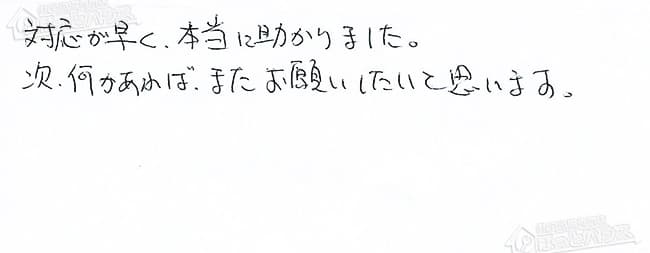 対応が早く、本当に助かりました。
次、何かあれば、またお願いしたいと思います。